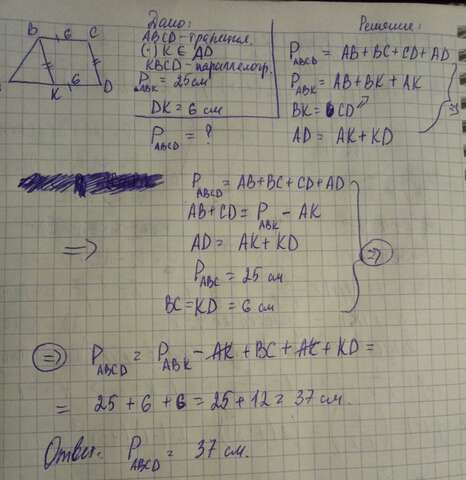 B 6 C
A K 6 D
Дано:
ABCD - трапеция.
(·) K ∈ AD
KBCD - параллелогр.
P_ABK = 25 см
DK = 6 см
P_ABCD = ?
Решение:
P_ABCD = AB + BC + CD + AD
P_ABK = AB + BK + AK
BK = CD
AD = AK + KD
=>
P_ABCD = AB + BC + CD + AD
AB + CD = P_ABK - AK
=> AD = AK + KD =>
P_ABC = 25 см
BC = KD = 6 см
=> P_ABCD = P_ABK - AK + BC + AK + KD =
= 25 + 6 + 6 = 25 + 12 = 37 см.
Ответ: P_ABCD = 37 см.